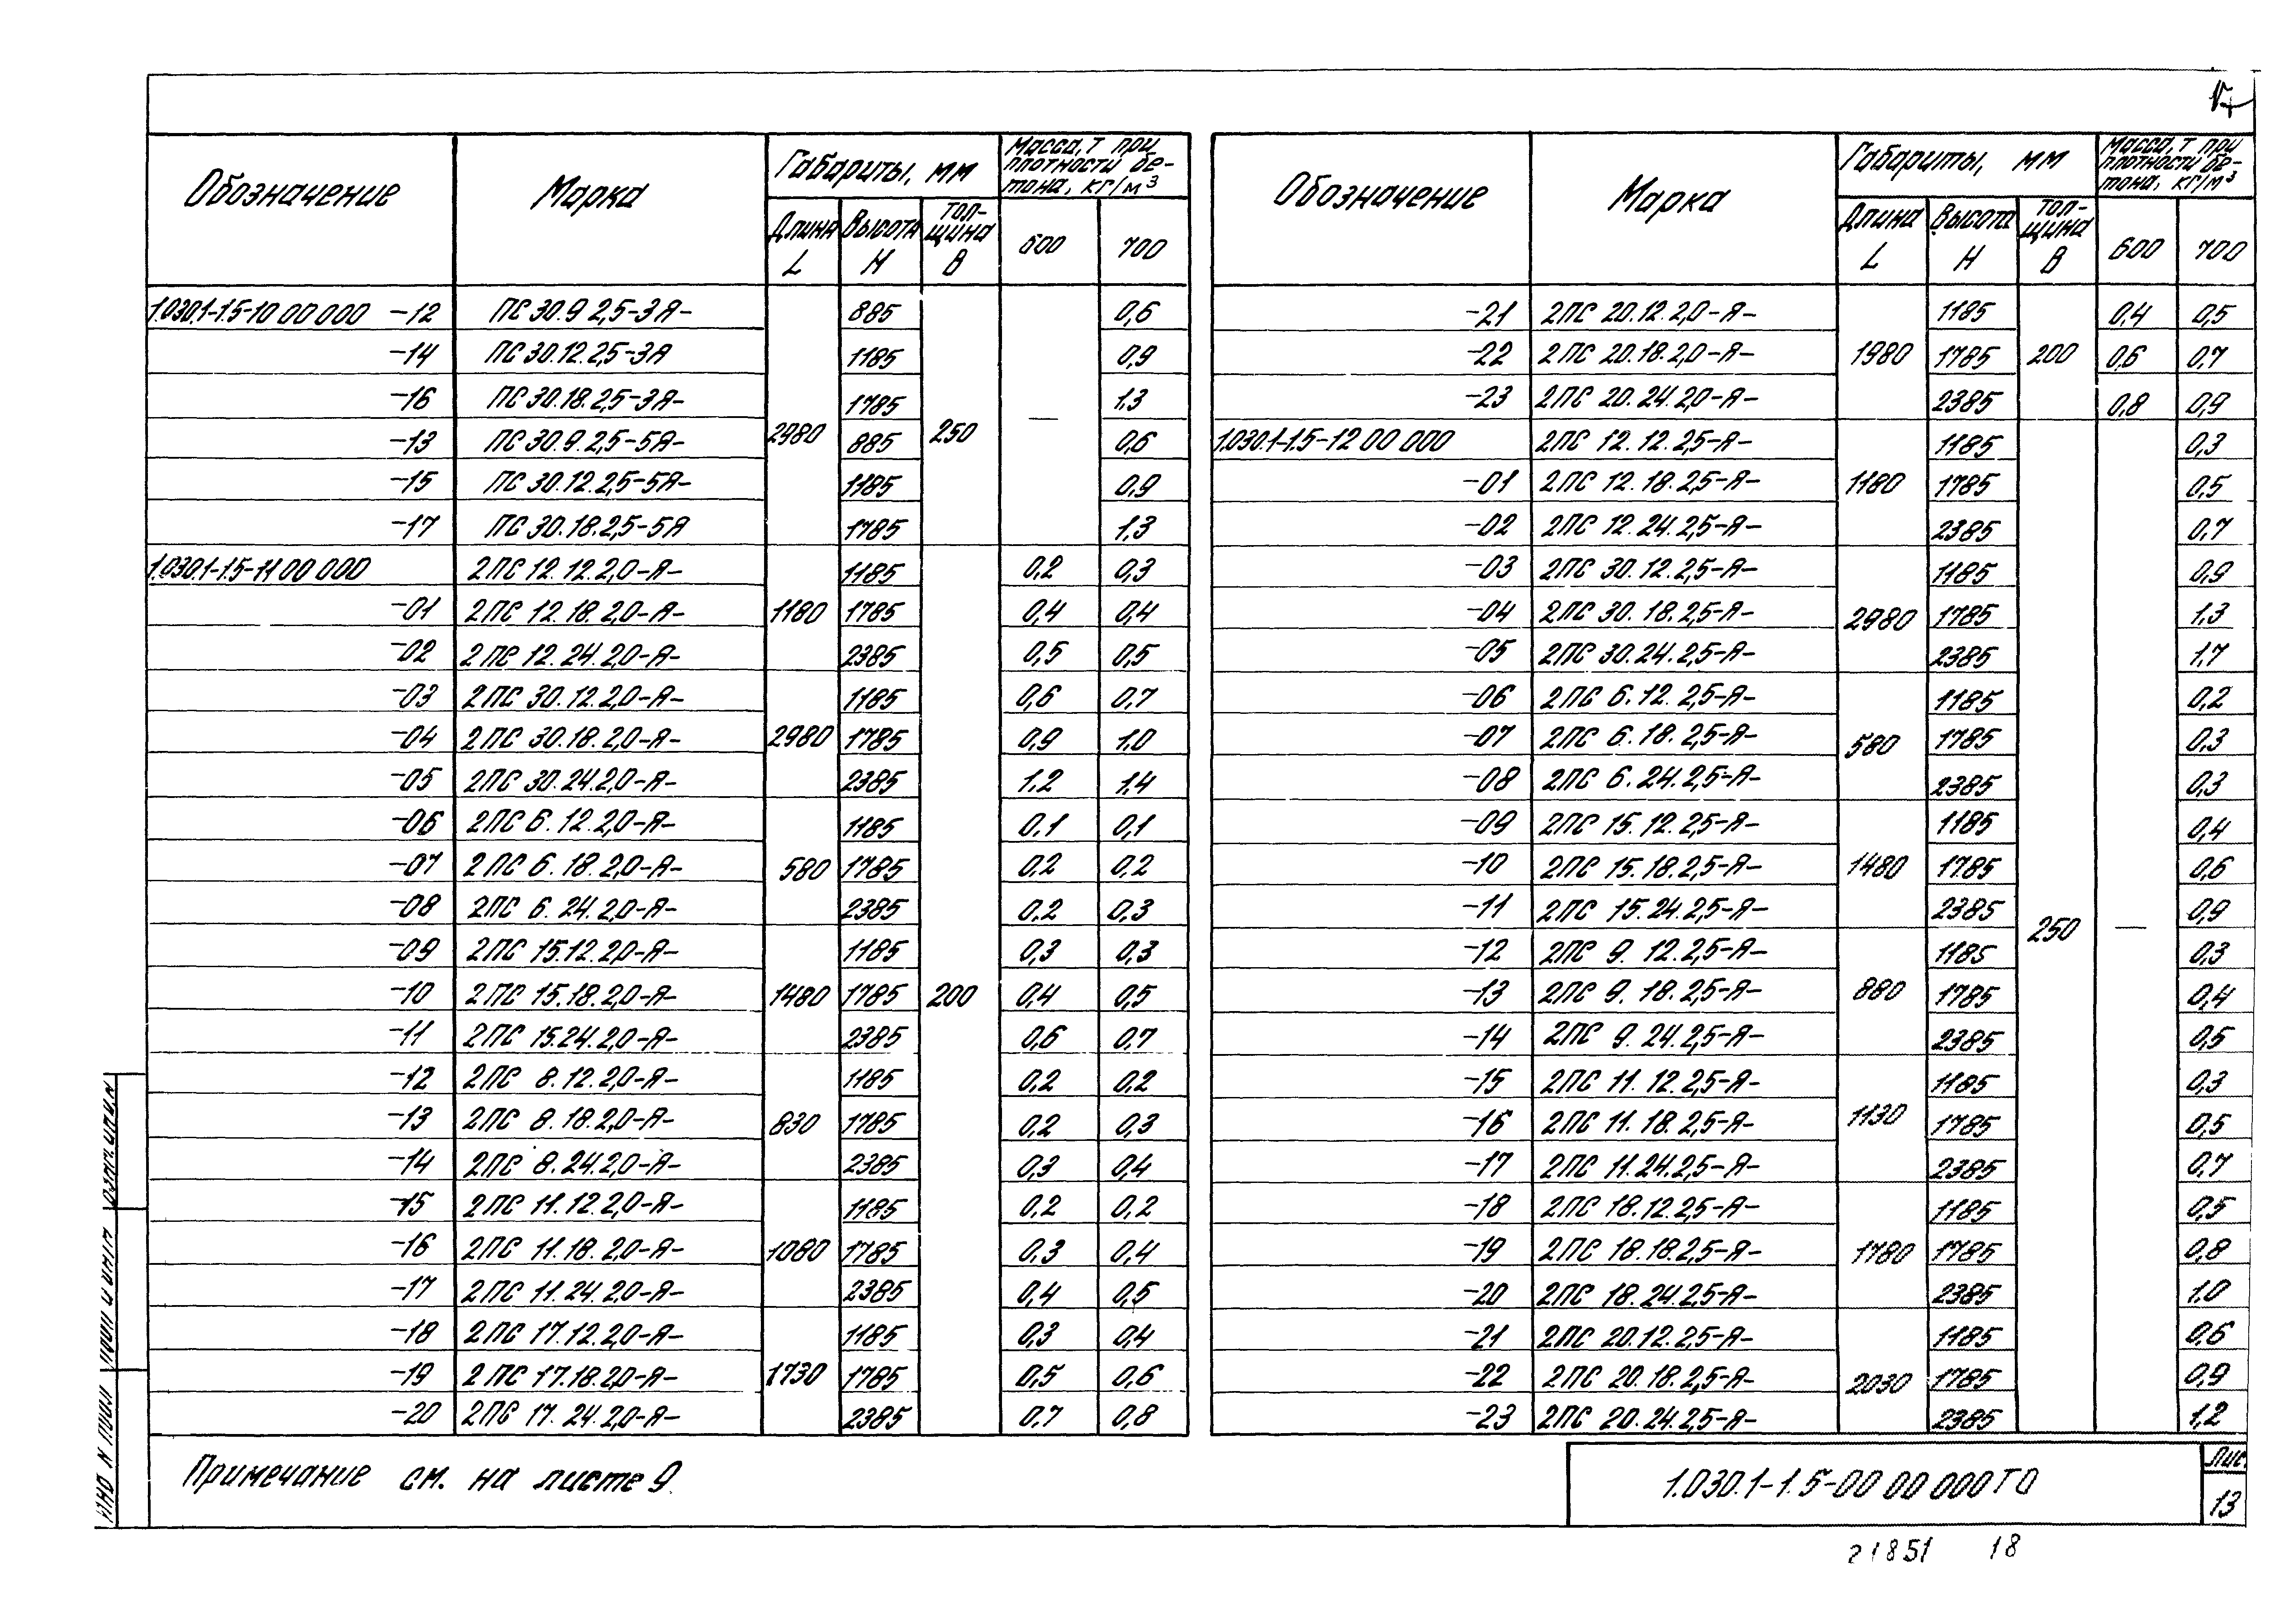 Обозначение Марка Габариты, мм Масса, т при плотности бетона, кг/м³
Длина L Высота Н Толщина В 600 700
1.030.1-1.5-10 00 000 -12 ПС 30.9 2,5-3Я- 2980 885 250 — 0,6
-14 ПС 30.12.2,5-3Я 1185 0,9
-16 ПС 30.18.2,5-3Я- 1785 1,3
-13 ПС 30.9 2,5-5Я- 885 0,6
-15 ПС 30.12.2,5-5Я- 1185 0,9
-17 ПС 30.18.2,5-5Я 1785 1,3
1.030.1-1.5-11 00 000 2ПС 12.12.2,0-Я- 1180 1185 200 0,2 0,3
-01 2ПС 12.18.2,0-Я- 1785 0,4 0,4
-02 2ПС 12.24.2,0-Я- 2385 0,5 0,5
-03 2ПС 30.12.2,0-Я- 2980 1185 0,6 0,7
-04 2ПС 30.18.2,0-Я- 1785 0,9 1,0
-05 2ПС 30.24.2,0-Я- 2385 1,2 1,4
-06 2ПС 6.12.2,0-Я- 580 1185 0,1 0,1
-07 2ПС 6.18.2,0-Я- 1785 0,2 0,2
-08 2ПС 6.24.2,0-Я- 2385 0,2 0,3
-09 2ПС 15.12.2,0-Я- 1480 1185 0,3 0,3
-10 2ПС 15.18.2,0-Я- 1785 0,4 0,5
-11 2ПС 15.24.2,0-Я- 2385 0,6 0,7
-12 2ПС 8.12.2,0-Я- 830 1185 0,2 0,2
-13 2ПС 8.18.2,0-Я- 1785 0,2 0,3
-14 2ПС 8.24.2,0-Я- 2385 0,3 0,4
-15 2ПС 11.12.2,0-Я- 1080 1185 0,2 0,2
-16 2ПС 11.18.2,0-Я- 1785 0,3 0,4
-17 2ПС 11.24.2,0-Я- 2385 0,4 0,5
-18 2ПС 17.12.2,0-Я- 1730 1185 0,3 0,4
-19 2ПС 17.18.2,0-Я- 1785 0,5 0,6
-20 2ПС 17.24.2,0-Я- 2385 0,7 0,8
Обозначение Марка Габариты, мм Масса, т при плотности бетона, кг/м³
Длина L Высота Н Толщина В 600 700
-21 2ПС 20.12.2,0-Я- 1980 1185 200 0,4 0,5
-22 2ПС 20.18.2,0-Я- 1785 0,6 0,7
-23 2ПС 20.24.2,0-Я- 2385 0,8 0,9
1.030.1-1.5-12 00 000 2ПС 12.12.2,5-Я- 1180 1185 250 — 0,3
-01 2ПС 12.18.2,5-Я- 1785 0,5
-02 2ПС 12.24.2,5-Я- 2385 0,7
-03 2ПС 30.12.2,5-Я- 2980 1185 0,9
-04 2ПС 30.18.2,5-Я- 1785 1,3
-05 2ПС 30.24.2,5-Я- 2385 1,7
-06 2ПС 6.12.2,5-Я- 580 1185 0,2
-07 2ПС 6.18.2,5-Я- 1785 0,3
-08 2ПС 6.24.2,5-Я- 2385 0,3
-09 2ПС 15.12.2,5-Я- 1480 1185 0,4
-10 2ПС 15.18.2,5-Я- 1785 0,6
-11 2ПС 15.24.2,5-Я- 2385 0,9
-12 2ПС 9.12.2,5-Я- 880 1185 0,3
-13 2ПС 9.18.2,5-Я- 1785 0,4
-14 2ПС 9.24.2,5-Я- 2385 0,5
-15 2ПС 11.12.2,5-Я- 1130 1185 0,3
-16 2ПС 11.18.2,5-Я- 1785 0,5
-17 2ПС 11.24.2,5-Я- 2385 0,7
-18 2ПС 18.12.2,5-Я- 1780 1185 0,5
-19 2ПС 18.18.2,5-Я- 1785 0,8
-20 2ПС 18.24.2,5-Я- 2385 1,0
-21 2ПС 20.12.2,5-Я- 2030 1185 0,6
-22 2ПС 20.18.2,5-Я- 1785 0,9
-23 2ПС 20.24.2,5-Я- 2385 1,2
Примечание см. на листе 9.
1.030.1-1.5-00 00 000ТО
Лис.
13
21851 18